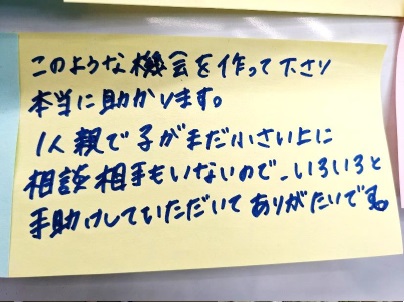 このような機会を作って下さり
本当に助かります。
1人親で子がまだ小さい上に
相談相手もいないので、いろいろと
手助けしていただいてありがたいです。